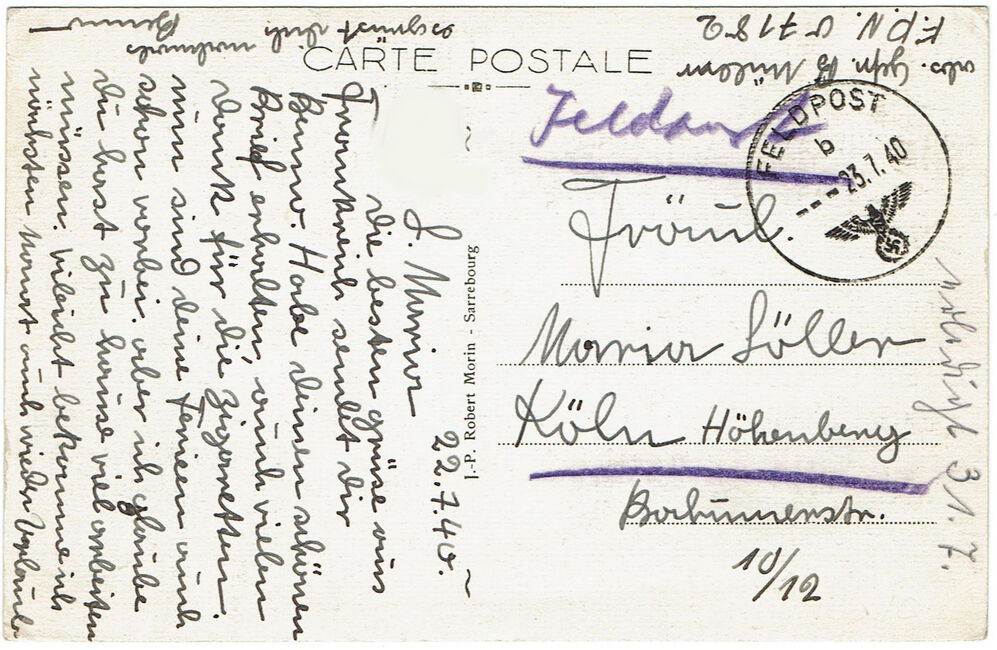 CARTE POSTALE
22.7.40.
L. Maria
die besten grüße aus
Frankreich sendet dir
Benno. Habe deinen schönen
brief erhalten, auch vielen
Dank für die zigaretten.
nun sind deine ferien auch
schon vorbei. aber ich glaube
du hast zu hause viel arbeiten
müssen. vileicht bekomme ich
nächsten monat auch wieder Urlaub
es grüßt dich nochmals
Benno
J.-P. Robert Morin - Sarrebourg
abs. Gefr. B Müller
F.P.N. 07182
Feldpost
FELDPOST
b
23.7.40
Fräul.
Maria Söller
Köln Höhenberg
Bochumerstr.
10/12
31. 7.